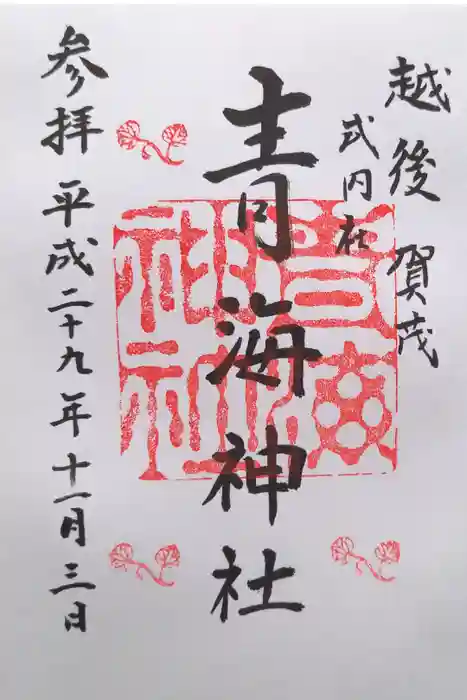 越後 賀茂
式内社
青海神社
青海神社
参拝 平成二十九年十一月三日